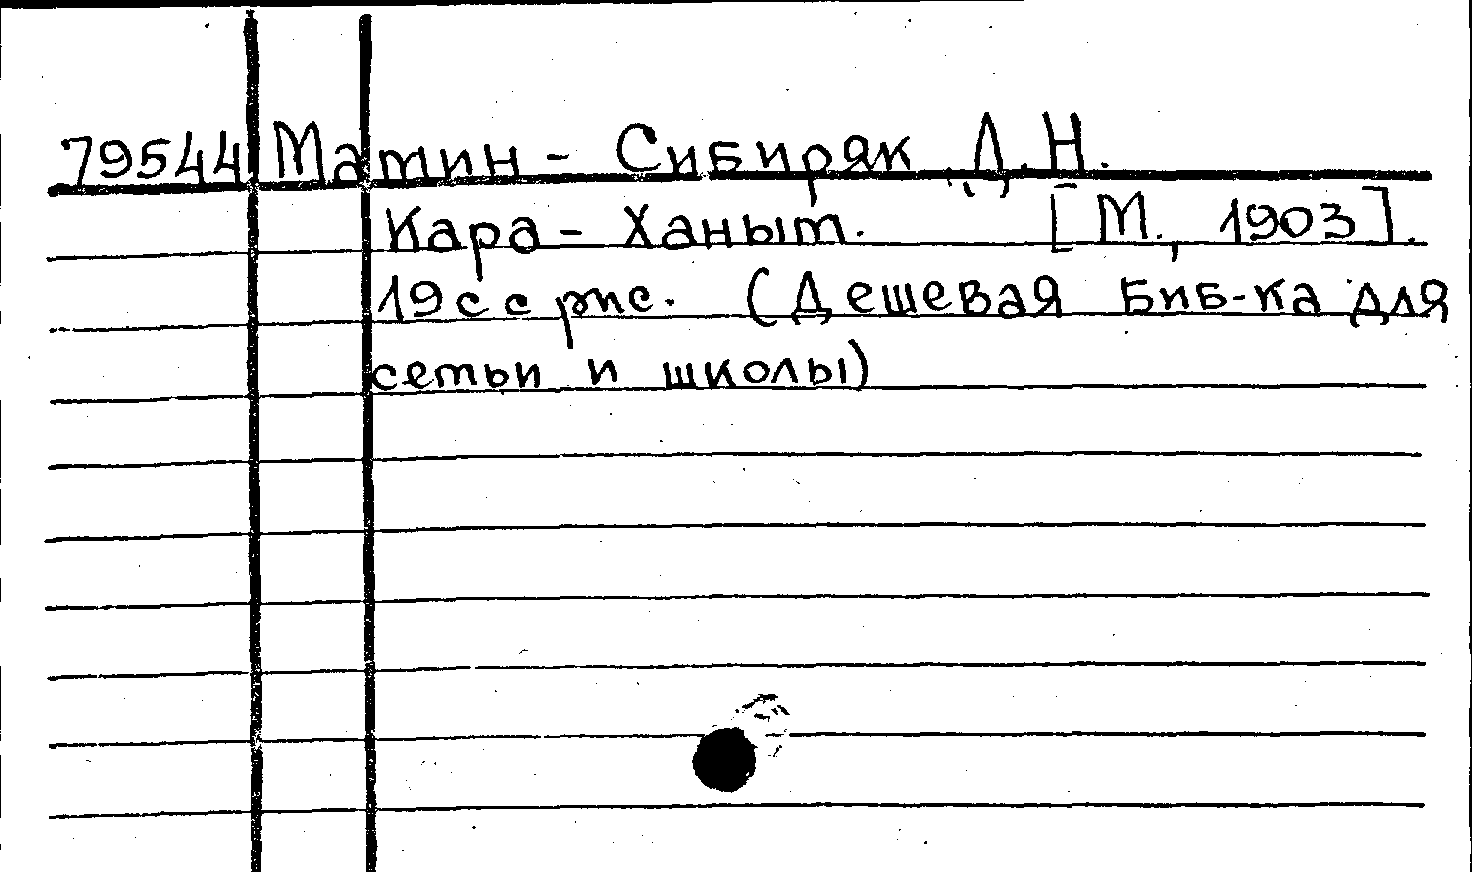 79544 Мамин - Сибиряк Д.Н.
Кара - Ханым. [М., 1903].
19 с с рис. (Дешевая Биб-ка для
семьи и школы)